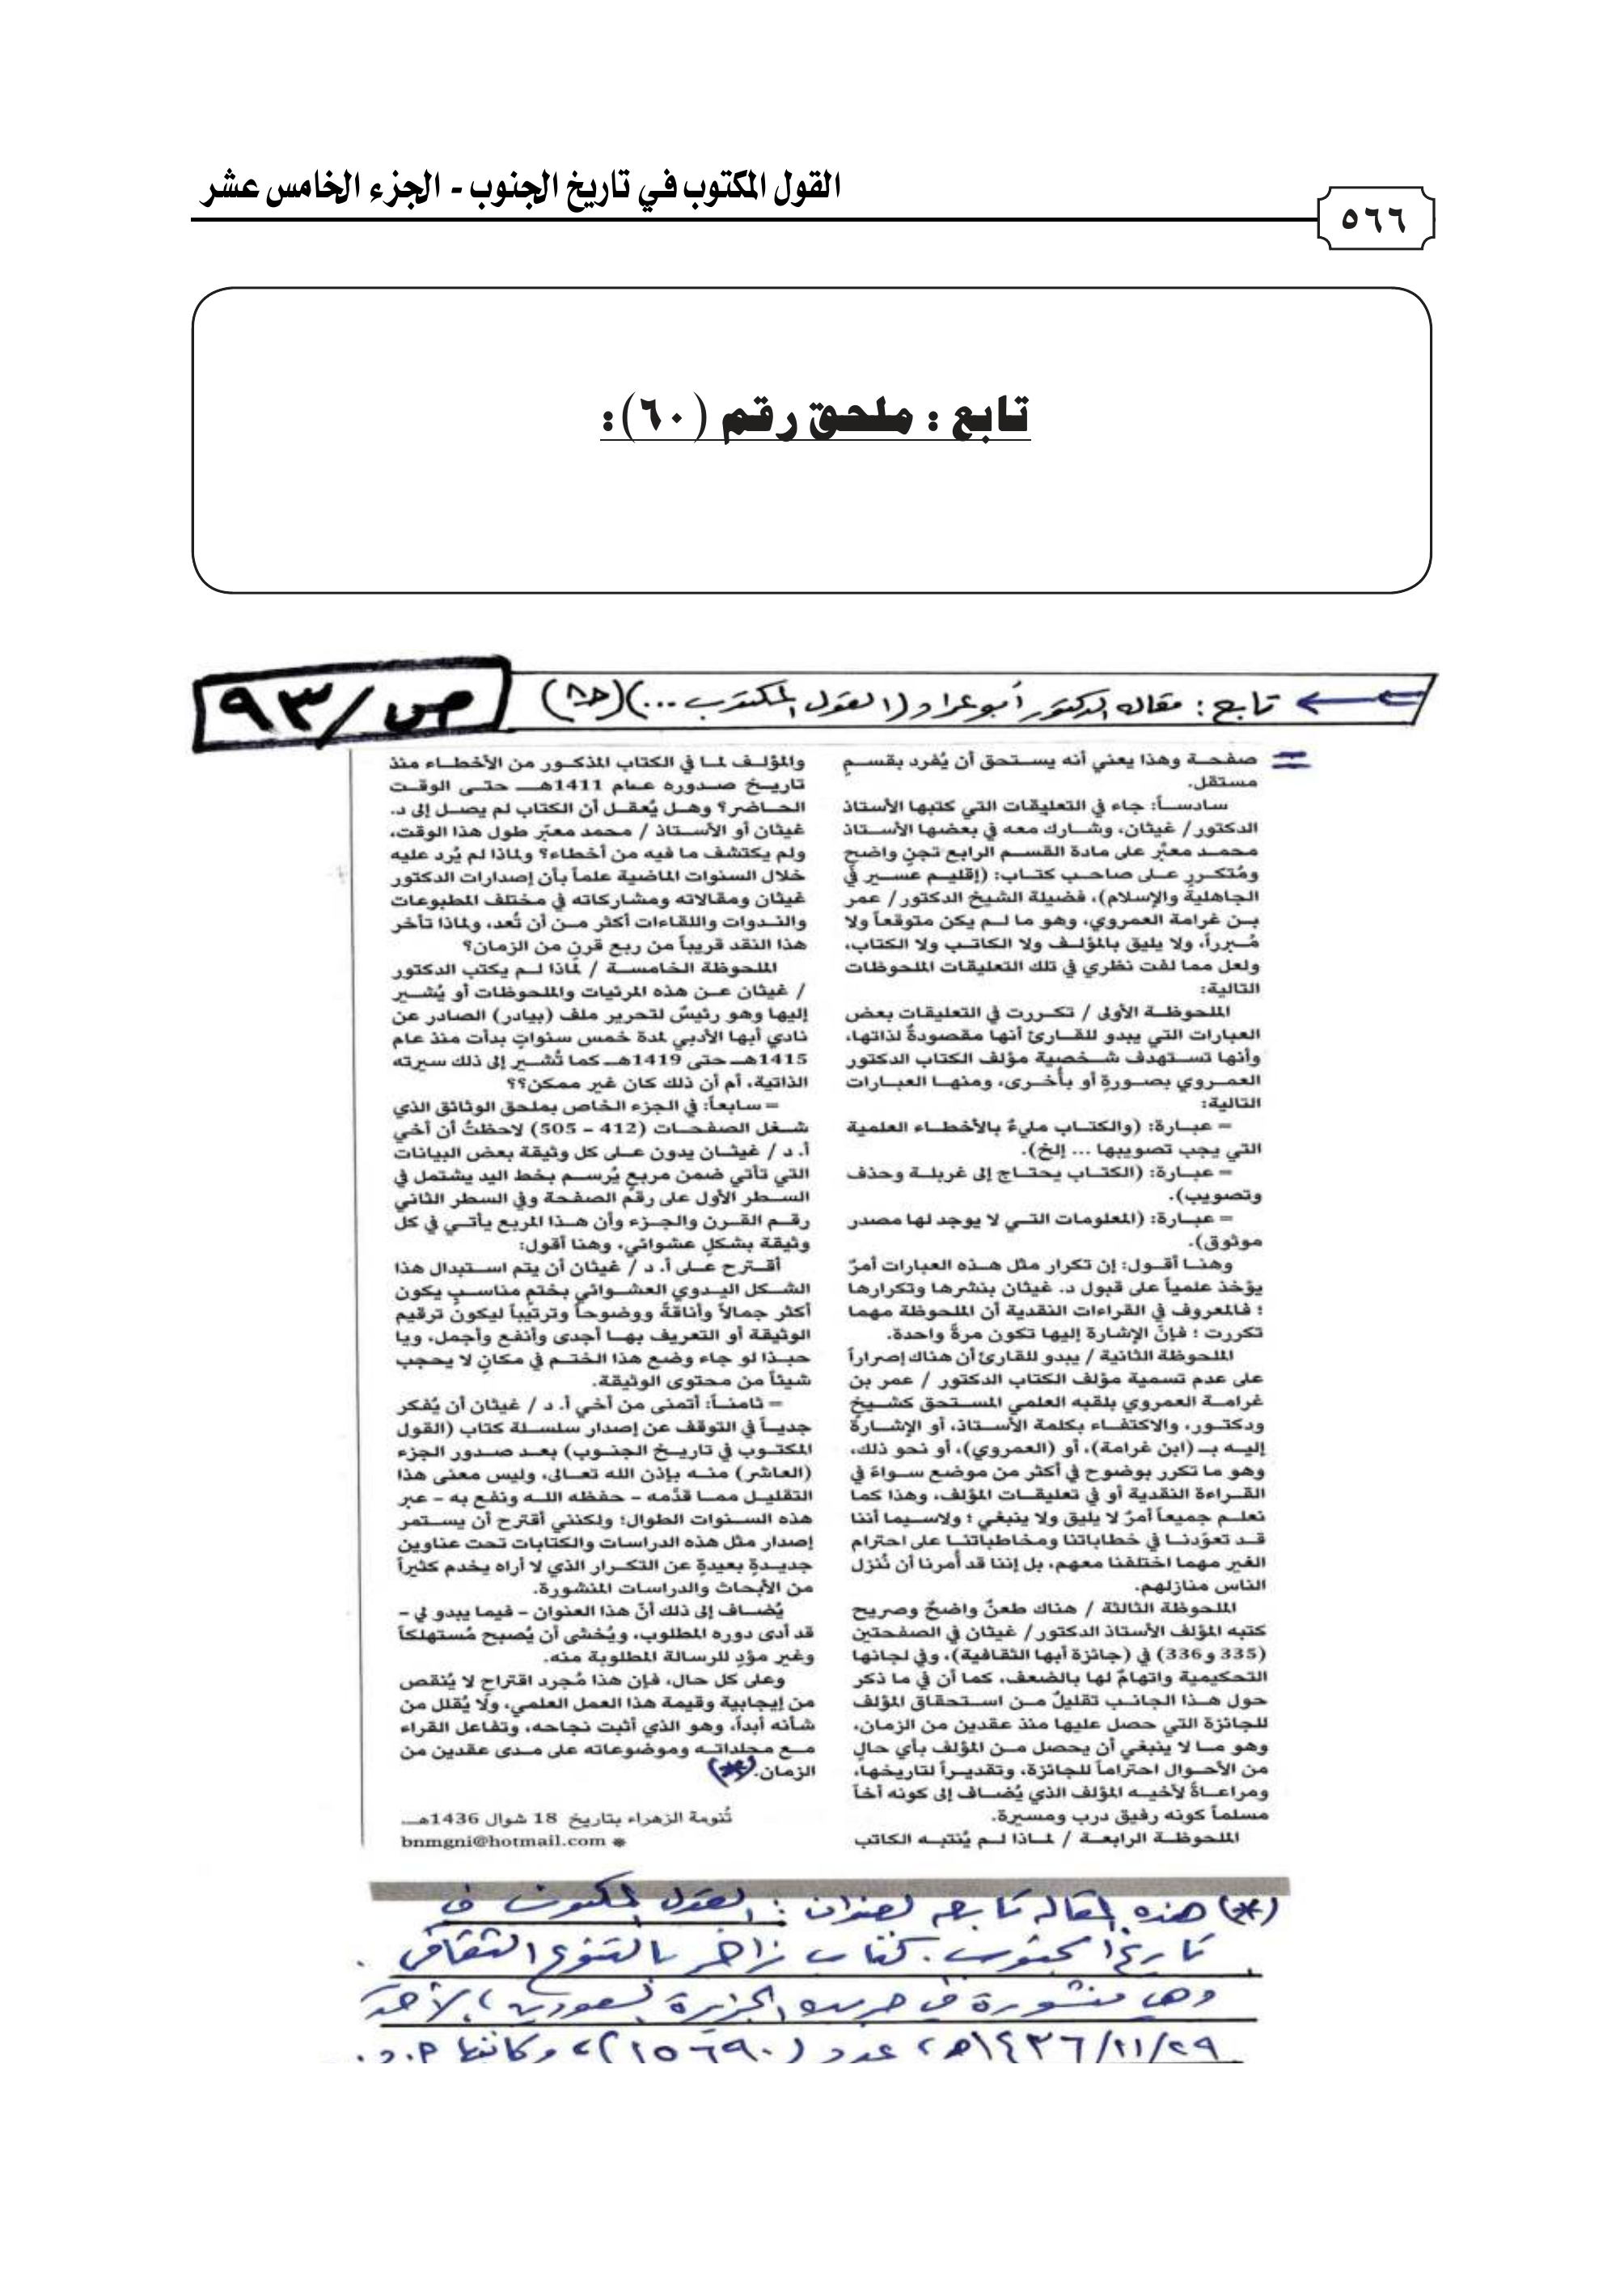 القول المكتوب في تاريخ الجنوب - الجزء الخامس عشر
٥٦٦
تابع : ملحق رقم (٦٠):
تابع : مقاله الدكتور أبو عراد (القول المكتوب ...) (ح٨)
ص/٩٣
= صفحة وهذا يعني أنه يستحق أن يُفرد بقسمٍ
مستقل.
سادساً: جاء في التعليقات التي كتبها الأستاذ
الدكتور/ غيثان، وشارك معه في بعضها الأستاذ
محمد معبّر على مادة القسم الرابع تجنٍ واضحٍ
ومُتكررٍ على صاحب كتاب: (إقليم عسير في
الجاهلية والإسلام)، فضيلة الشيخ الدكتور/ عمر
بن غرامة العمروي، وهو ما لم يكن متوقعاً ولا
مُبرراً، ولا يليق بالمؤلف ولا الكاتب ولا الكتاب،
ولعل مما لفت نظري في تلك التعليقات الملحوظات
التالية:
الملحوظة الأولى / تكررت في التعليقات بعض
العبارات التي يبدو للقارئ أنها مقصودةٌ لذاتها،
وأنها تستهدف شخصية مؤلف الكتاب الدكتور
العمروي بصورةٍ أو بأُخرى، ومنها العبارات
التالية:
= عبارة: (والكتاب مليءٌ بالأخطاء العلمية
التي يجب تصويبها ... إلخ).
= عبارة: (الكتاب يحتاج إلى غربلة وحذف
وتصويب).
= عبارة: (المعلومات التي لا يوجد لها مصدر
موثوق).
وهنا أقول: إن تكرار مثل هذه العبارات أمرٌ
يؤخذ علمياً على قبول د. غيثان بنشرها وتكرارها
؛ فالمعروف في القراءات النقدية أن الملحوظة مهما
تكررت ؛ فإنّ الإشارة إليها تكون مرةً واحدة.
الملحوظة الثانية / يبدو للقارئ أن هناك إصراراً
على عدم تسمية مؤلف الكتاب الدكتور / عمر بن
غرامة العمروي بلقبه العلمي المستحق كشيخٍ
ودكتور، والاكتفاء بكلمة الأستاذ، أو الإشارة
إليه بـ (ابن غرامة)، أو (العمروي)، أو نحو ذلك،
وهو ما تكرر بوضوح في أكثر من موضع سواءً في
القراءة النقدية أو في تعليقات المؤلف، وهذا كما
نعلم جميعاً أمرٌ لا يليق ولا ينبغي ؛ ولاسيما أننا
قد تعوّدنا في خطاباتنا ومخاطباتنا على احترام
الغير مهما اختلفنا معهم، بل إننا قد أُمرنا أن نُنزل
الناس منازلهم.
الملحوظة الثالثة / هناك طعنٌ واضحٌ وصريح
كتبه المؤلف الأستاذ الدكتور/ غيثان في الصفحتين
(335 و336) في (جائزة أبها الثقافية)، وفي لجانها
التحكيمية واتهامٌ لها بالضعف، كما أن في ما ذكر
حول هذا الجانب تقليلٌ من استحقاق المؤلف
للجائزة التي حصل عليها منذ عقدين من الزمان،
وهو ما لا ينبغي أن يحصل من المؤلف بأي حالٍ
من الأحوال احتراماً للجائزة، وتقديراً لتاريخها،
ومراعاةً لأخيه المؤلف الذي يُضاف إلى كونه أخاً
مسلماً كونه رفيق درب ومسيرة.
الملحوظة الرابعة / لماذا لم يُنتبه الكاتب
والمؤلف لما في الكتاب المذكور من الأخطاء منذ
تاريخ صدوره عام 1411هـ حتى الوقت
الحاضر؟ وهل يُعقل أن الكتاب لم يصل إلى د.
غيثان أو الأستاذ / محمد معبّر طول هذا الوقت،
ولم يكتشف ما فيه من أخطاء؟ ولماذا لم يُرد عليه
خلال السنوات الماضية علماً بأن إصدارات الدكتور
غيثان ومقالاته ومشاركاته في مختلف المطبوعات
والندوات واللقاءات أكثر من أن تُعد، ولماذا تأخر
هذا النقد قريباً من ربع قرنٍ من الزمان؟
الملحوظة الخامسة / لماذا لم يكتب الدكتور
/ غيثان عن هذه المرئيات والملحوظات أو يُشير
إليها وهو رئيسٌ لتحرير ملف (بيادر) الصادر عن
نادي أبها الأدبي لمدة خمس سنواتٍ بدأت منذ عام
1415هـ حتى 1419هـ كما تُشير إلى ذلك سيرته
الذاتية، أم أن ذلك كان غير ممكن؟؟
= سابعاً: في الجزء الخاص بملحق الوثائق الذي
شغل الصفحات (412 - 505) لاحظتُ أن أخي
أ. د / غيثان يدون على كل وثيقة بعض البيانات
التي تأتي ضمن مربعٍ يُرسم بخط اليد يشتمل في
السطر الأول على رقم الصفحة وفي السطر الثاني
رقم القرن والجزء وأن هذا المربع يأتي في كل
وثيقة بشكلٍ عشوائي، وهنا أقول:
أقترح على أ. د / غيثان أن يتم استبدال هذا
الشكل اليدوي العشوائي بختمٍ مناسبٍ يكون
أكثر جمالاً وأناقةً ووضوحاً وترتيباً ليكون ترقيم
الوثيقة أو التعريف بها أجدى وأنفع وأجمل، ويا
حبذا لو جاء وضع هذا الختم في مكانٍ لا يحجب
شيئاً من محتوى الوثيقة.
= ثامناً: أتمنى من أخي أ. د / غيثان أن يُفكر
جدياً في التوقف عن إصدار سلسلة كتاب (القول
المكتوب في تاريخ الجنوب) بعد صدور الجزء
(العاشر) منه بإذن الله تعالى، وليس معنى هذا
التقليل مما قدّمه - حفظه الله ونفع به - عبر
هذه السنوات الطوال؛ ولكنني أقترح أن يستمر
إصدار مثل هذه الدراسات والكتابات تحت عناوين
جديدةٍ بعيدةٍ عن التكرار الذي لا أراه يخدم كثيراً
من الأبحاث والدراسات المنشورة.
يُضاف إلى ذلك أنّ هذا العنوان - فيما يبدو لي -
قد أدى دوره المطلوب، ويُخشى أن يُصبح مُستهلكاً
وغير مؤدٍ للرسالة المطلوبة منه.
وعلى كل حال، فإن هذا مُجرد اقتراحٍ لا يُنقص
من إيجابية وقيمة هذا العمل العلمي، ولا يُقلل من
شأنه أبداً، وهو الذي أثبت نجاحه، وتفاعل القراء
مع مجلداته وموضوعاته على مدى عقدين من
الزمان.(*)
تُنومة الزهراء بتاريخ 18 شوال 1436هـ
* bnmgni@hotmail.com
(*) هذه المقاله تابعه لعنوان : القول المكتوب في
تاريخ الجنوب . كتاب زاخر بالتنوع الثقافي .
وهي منشورة في جريدة الجزيرة السعودية ، الأحد
٢٩/١١/١٤٣٦هـ ، عدد (١٥٦٩٠) ،